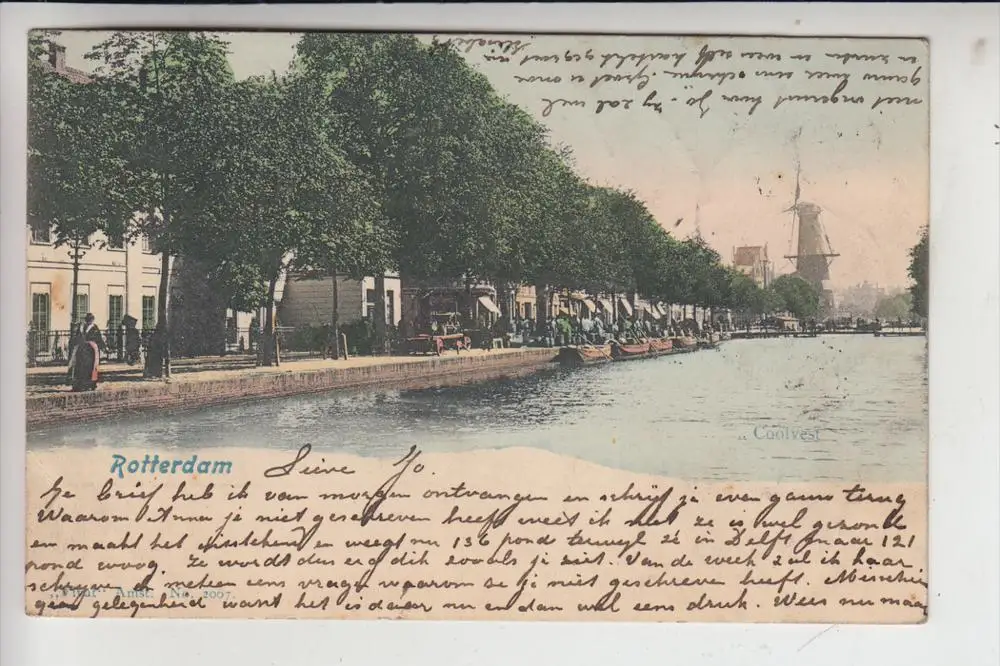 „ Coolvest
Rotterdam
Lieve Jo.
Je brief heb ik van morgen ontvangen en schrijf je even gauw terug
Waarom Anna je niet geschreven heeft weet ik niet ze is wel gezond
en maakt het uitstekend en weegt nu 136 pond terwijl ze in Delft maar 121
pond woog. Ze wordt dus erg dik zooals je ziet. Van de week zal ik haar
schrijven & meteen eens vragen waarom ze je niet geschreven heeft. Misschien
geen gelegenheid want het is daar nu en dan wel eens druk. Wees nu maar
„Vivat" Amst. No. 2007.
niet ongerust hoor Jo - zy zal wel
gauw weer eens schryven. Groet
en zoenen